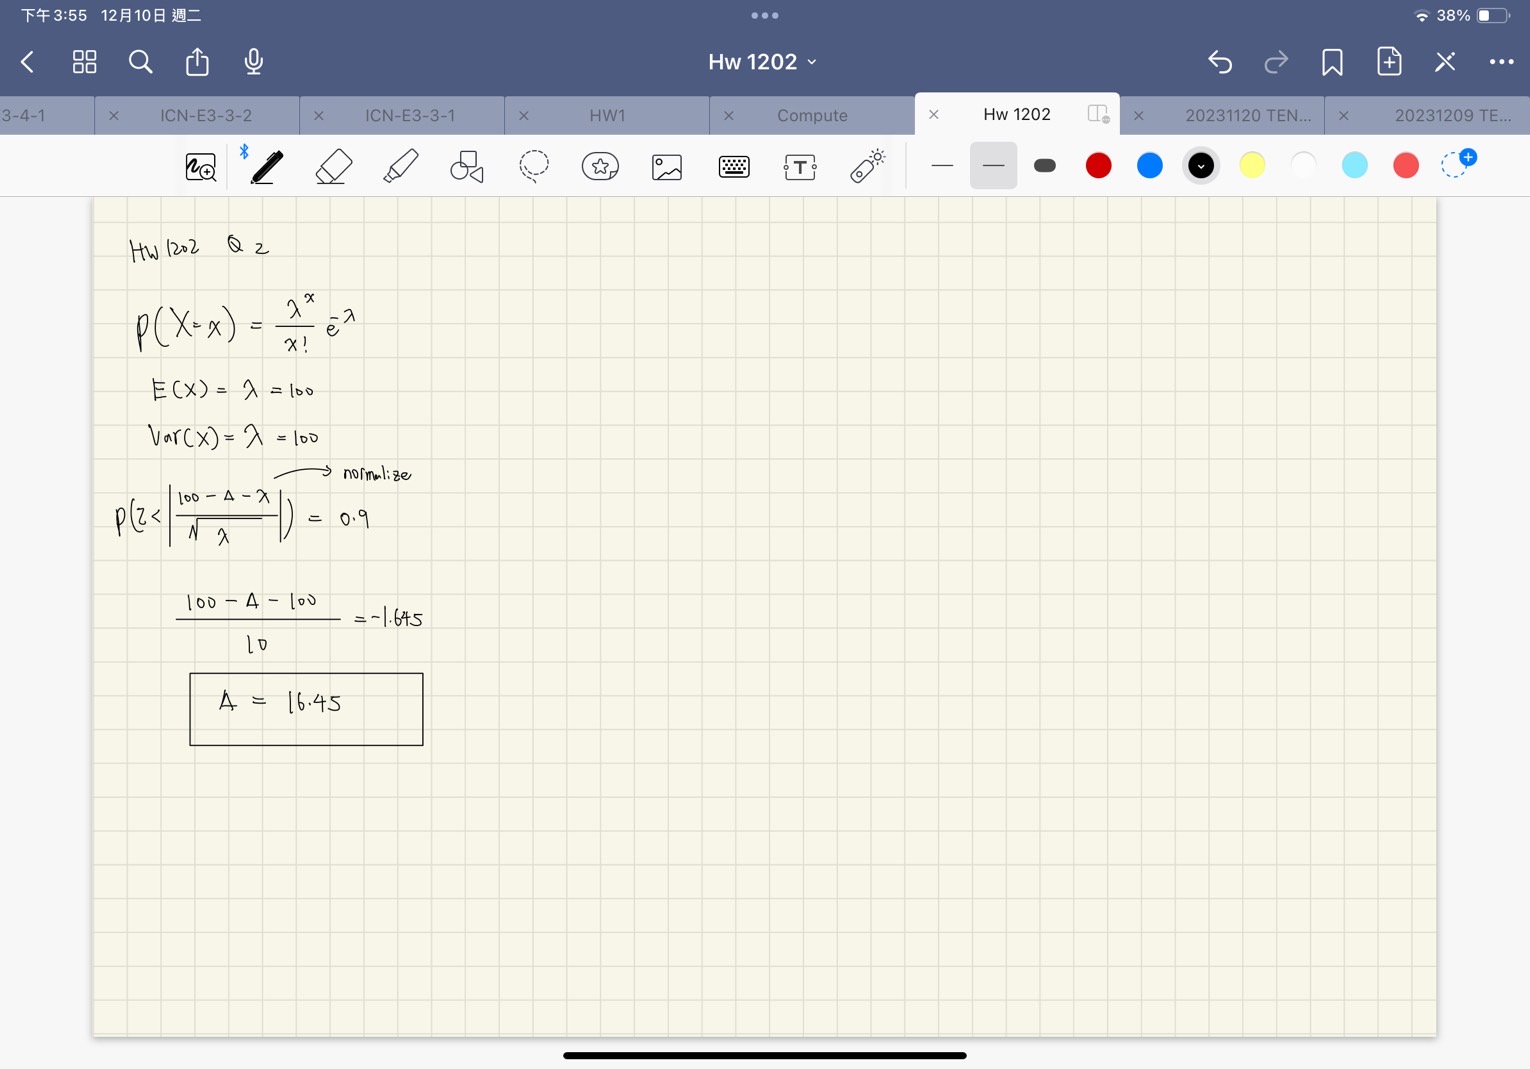 下午3:55 12月10日 週二
38%
Hw 1202
3-4-1
ICN-E3-3-2
ICN-E3-3-1
HW1
Compute
Hw 1202
20231120 TEN...
20231209 TE...
HW 1202 Q 2
P(X=x) = λ^x / x! e^-λ
E(X) = λ = 100
Var(X) = λ = 100
normalize
P(Z < |(100 - Δ - λ) / √λ|) = 0.9
(100 - Δ - 100) / 10 = -1.645
Δ = 16.45